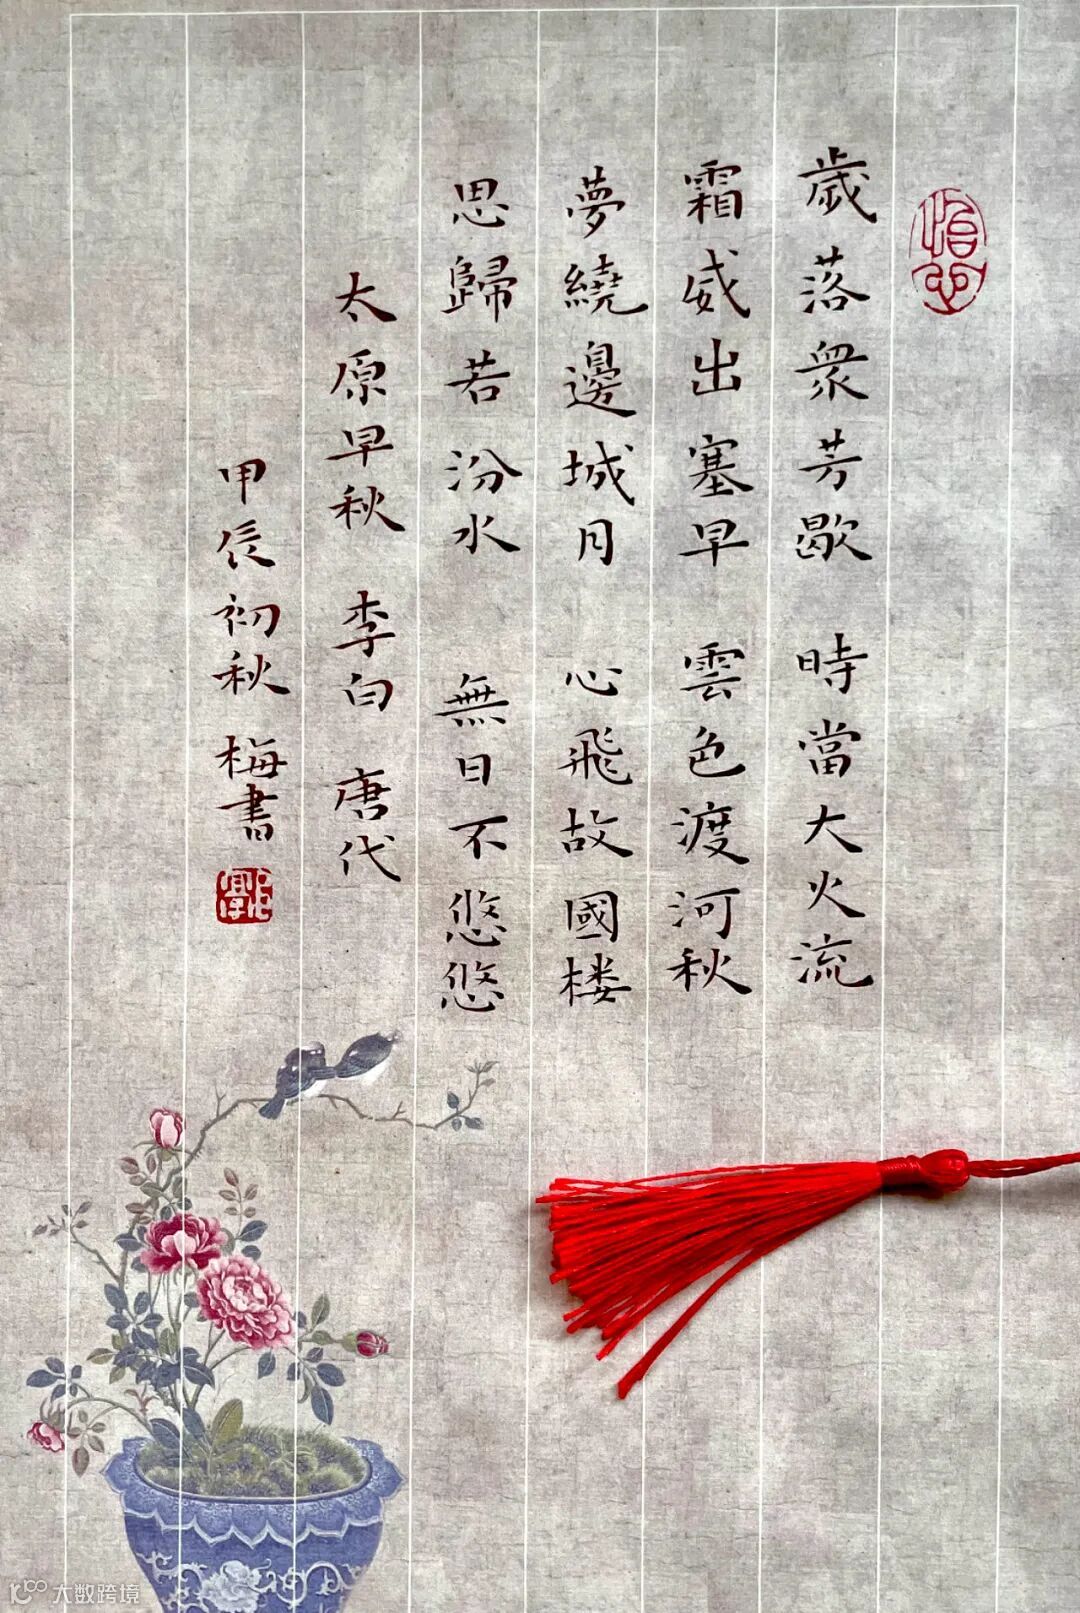 怡心
歲落衆芳歇 時當大火流
霜威出塞早 雲色渡河秋
夢繞邊城月 心飛故國楼
思歸若汾水 無日不悠悠
太原早秋 李白 唐代
甲辰初秋 梅書
大数跨境